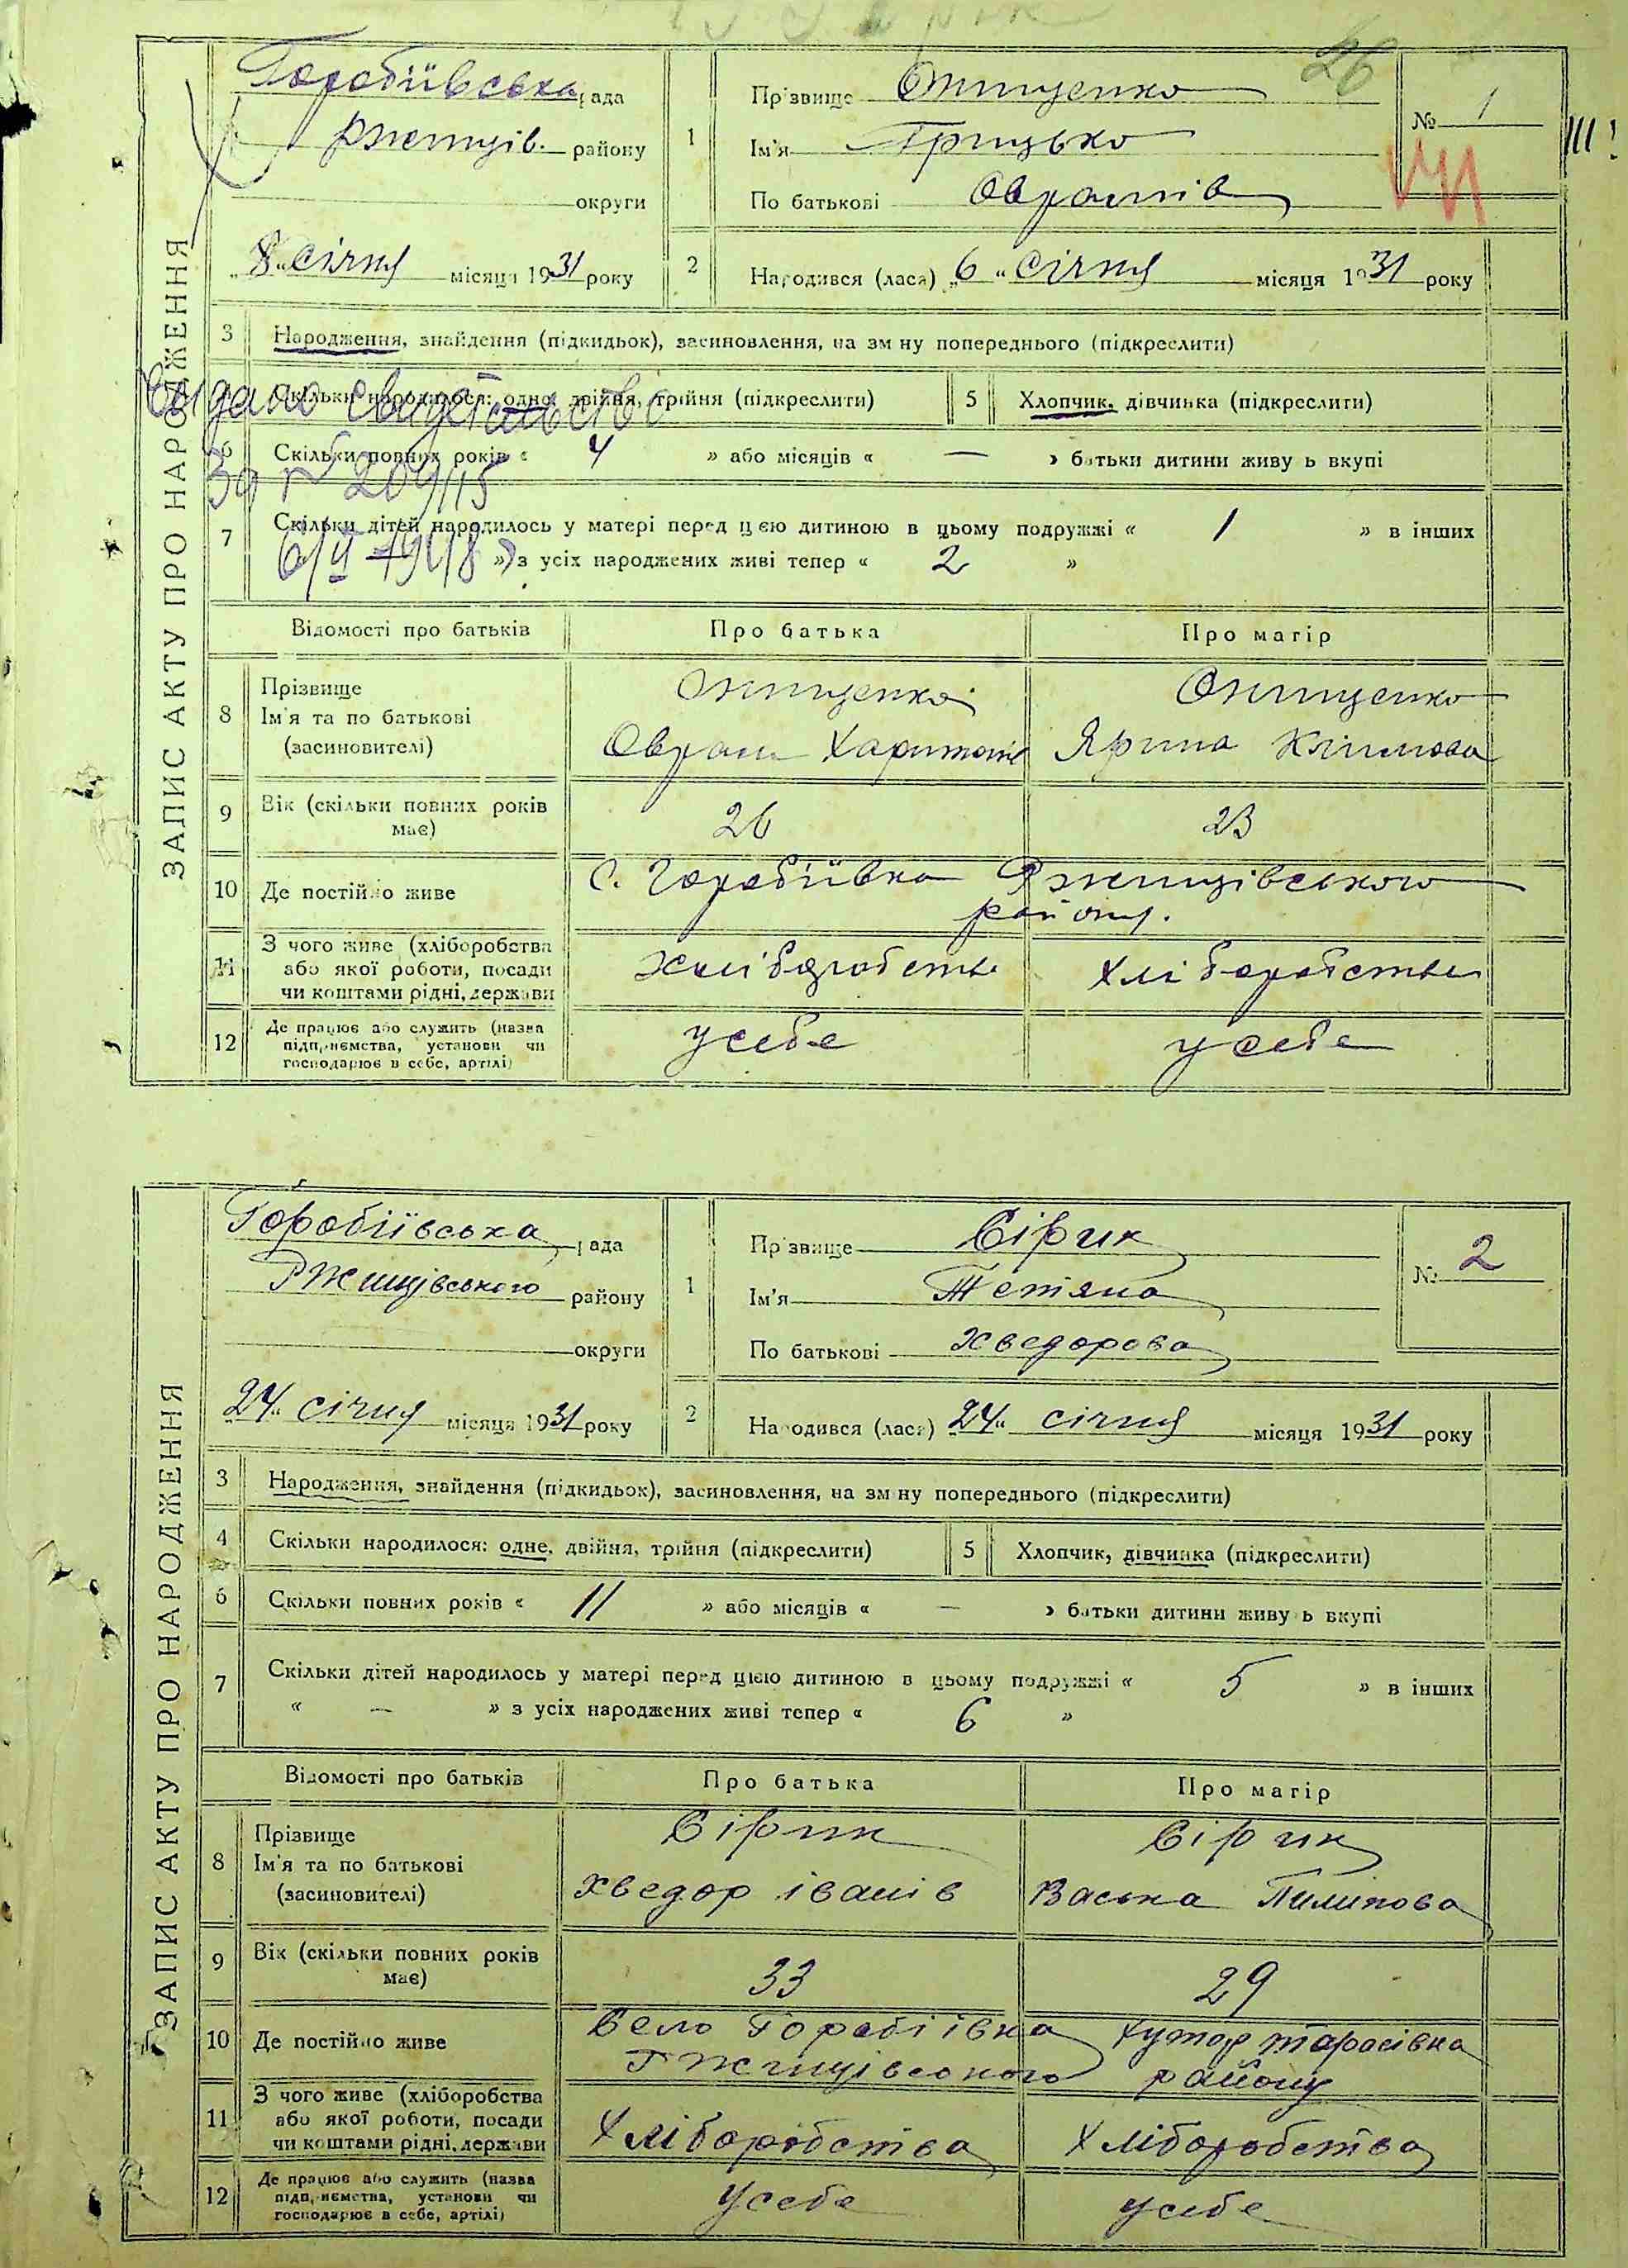 26
ЗАПИС АКТУ ПРО НАРОДЖЕННЯ
Горобіївська рада
Ржищів. району
округи
"8" січня місяця 1931 року
1
Прізвище Онищенко
Ім'я Грицько
По батькові Оврамів
№ 1
2
Народився (лася) "6" січня місяця 1931 року
3 Народження, знайдення (підкидьок), засиновлення, на зміну попереднього (підкреслити)
Скільки народилося: одно, двійня, трійня (підкреслити)
5 Хлопчик, дівчинка (підкреслити)
Выдано свидетельство
6 Скільки повних років « 4 » або місяців « — » батьки дитини живуть вкупі
7 Скільки дітей народилось у матері перед цією дитиною в цьому подружжі « 1 » в інших
» з усіх народжених живі тепер « 2 »
Відомості про батьків Про батька Про матір
8 Прізвище
Ім'я та по батькові
(засиновителі)
Онищенко
Оврам Харитонів
Онищенко
Ярина Клімова
9 Вік (скільки повних років має) 26 23
10 Де постійно живе с. Горобіївка Ржищівського
району.
11 З чого живе (хліборобства
або якої роботи, посади
чи коштами рідні, держави
хліборобства хліборобства
12 Де працює або служить (назва
підприємства, установи чи
господарює в себе, артілі)
у себе у себе
ЗАПИС АКТУ ПРО НАРОДЖЕННЯ
Горобіївська рада
Ржищівського району
округи
24" січня місяця 1931 року
1
Прізвище Сірик
Ім'я Тетяна
По батькові Хведорова
№ 2
2
Народився (лася) "24" січня місяця 1931 року
3 Народження, знайдення (підкидьок), засиновлення, на зміну попереднього (підкреслити)
4 Скільки народилося: одне, двійня, трійня (підкреслити)
5 Хлопчик, дівчинка (підкреслити)
6 Скільки повних років « 11 » або місяців « — » батьки дитини живуть вкупі
7 Скільки дітей народилось у матері перед цією дитиною в цьому подружжі « 5 » в інших
« — » з усіх народжених живі тепер « 6 »
Відомості про батьків Про батька Про матір
8 Прізвище
Ім'я та по батькові
(засиновителі)
Сірик
Хведор Іванів
Сірик
Васька Пилипова
9 Вік (скільки повних років має) 33 29
10 Де постійно живе Село Горобіївка хутор Тарасівка
Ржищівського району
11 З чого живе (хліборобства
або якої роботи, посади
чи коштами рідні, держави
Хліборобства Хліборобства
12 Де працює або служить (назва
підприємства, установи чи
господарює в себе, артілі)
усебе усебе